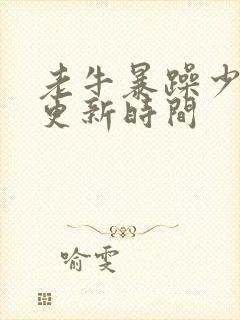 老牛暴躁少
更新時間
喻雯